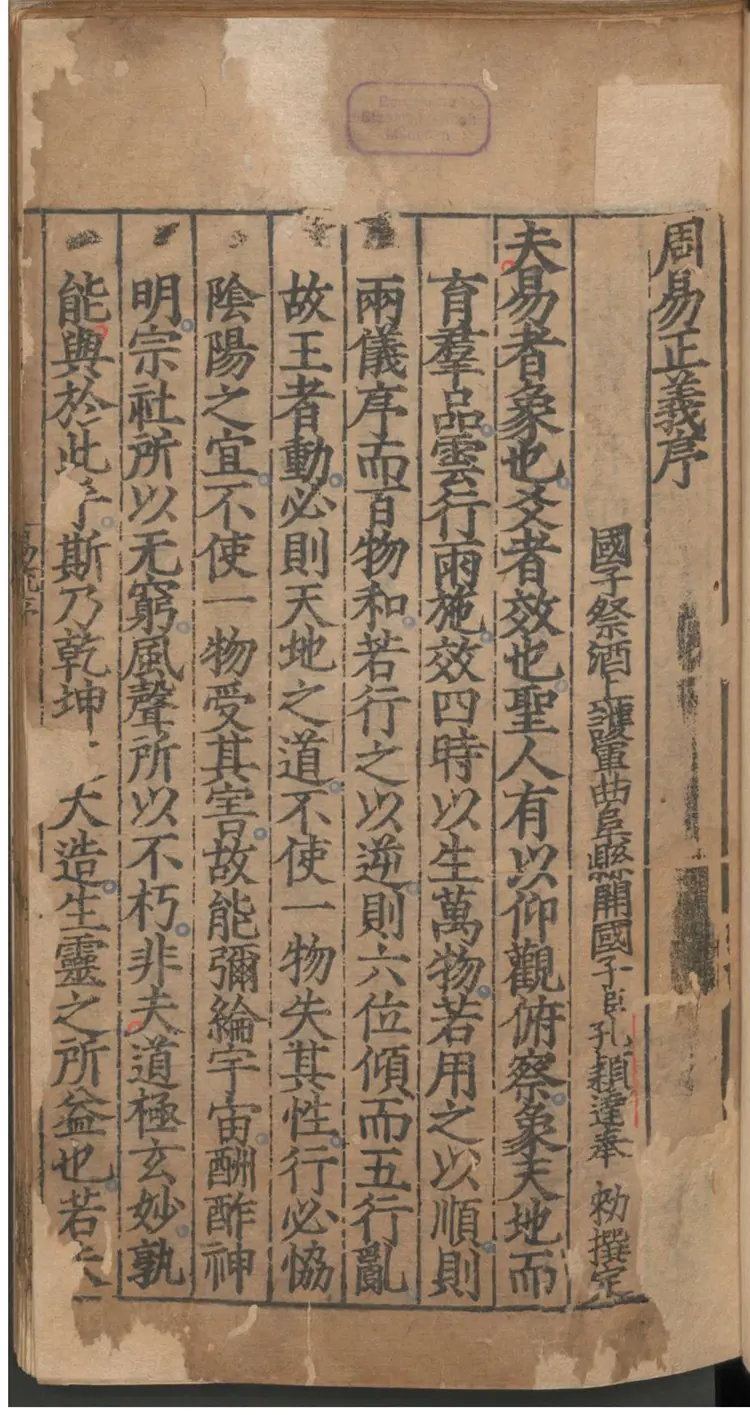 周易正義序
國子祭酒上護軍曲阜縣開國子臣孔穎達奉 勑撰定
夫易者象也爻者效也聖人有以仰觀俯察象天地而
育羣品雲行雨施效四時以生萬物若用之以順則
兩儀序而百物和若行之以逆則六位傾而五行亂
故王者動必則天地之道不使一物失其性行必恊
陰陽之宜不使一物受其害故能彌綸宇宙酬酢神
明宗社所以无窮風聲所以不朽非夫道極玄妙孰
能與於此乎斯乃乾坤大造生靈之所益也若